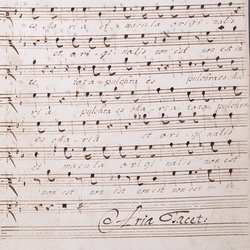 es Maria et macula origi nalis
et ori gi nalis non est non est in
te, tota pulchra es pulchra es Ma
ria pulchra es Ma ria tota pulchra
es Ma ria et ori gi nalis
es macula origi nalis non est
non est non est non est in te.
Aria Tacet: